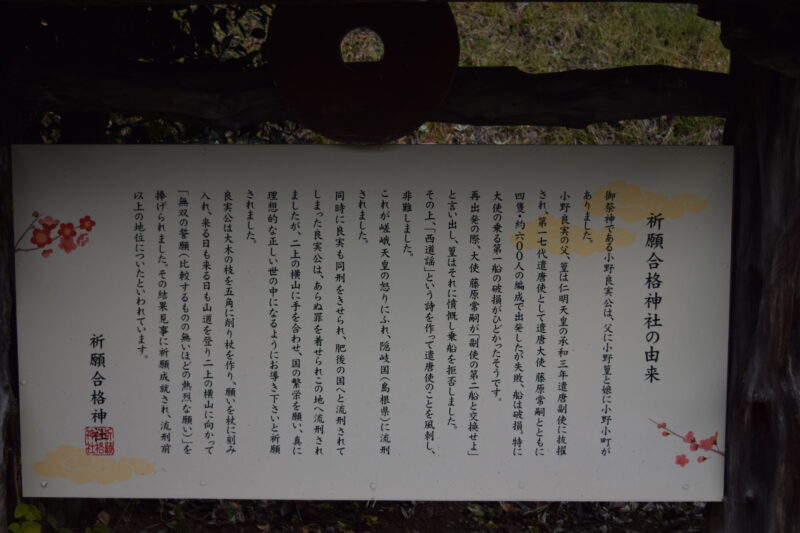 祈願合格神社の由来
御祭神である小野良実公は、父に小野篁と娘に小野小町が
ありました。
小野良実の父、篁は仁明天皇の承和三年遣唐副使に抜擢
され、第一七代遣唐使として遣唐大使 藤原常嗣とともに
四隻・約六〇〇人の編成で出発したが失敗、船は破損。特に
大使の乗る第一船の破損がひどかったそうです。
再出発の際、大使 藤原常嗣が「副使の第二船と交換せよ」
と言い出し、篁はそれに憤慨し乗船を拒否しました。
その上、「西道謡」という詩を作って遣唐使のことを風刺し、
非難しました。
これが嵯峨天皇の怒りにふれ、隠岐国(島根県)に流刑
されました。
同時に良実も同刑をきせられ、肥後の国へと流刑されて
しまった良実公は、あらぬ罪を着せられこの地へ流刑され
ましたが、二上の横山に手を合わせ、国の繁栄を願い、真に
理想的な正しい世の中になるようにお導き下さいと祈願
されました。
良実公は大木の枝を五角に削り杖を作り、願いを杖に刻み
入れ、来る日も来る日も山道を登り二上の横山に向かって
「無双の誓願(比較するものの無いほどの熱烈な願い)」を
捧げられました。その結果見事に祈願成就され、流刑前
以上の地位についたといわれています。
祈願合格神社